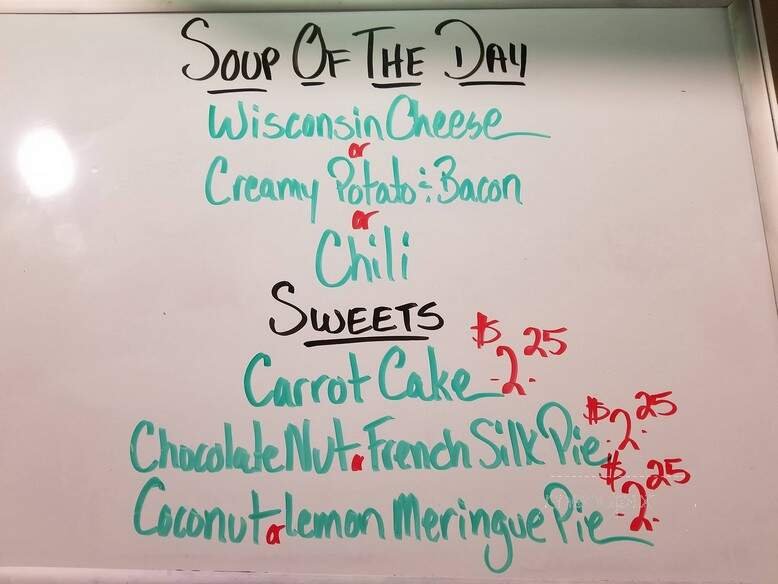 SOUP OF THE DAY
Wisconsin Cheese
or
Creamy Potato & Bacon
or
Chili
SWEETS
Carrot Cake $2.25
Chocolate Nut or French Silk Pie $2.25
Coconut or Lemon Meringue Pie $2.25